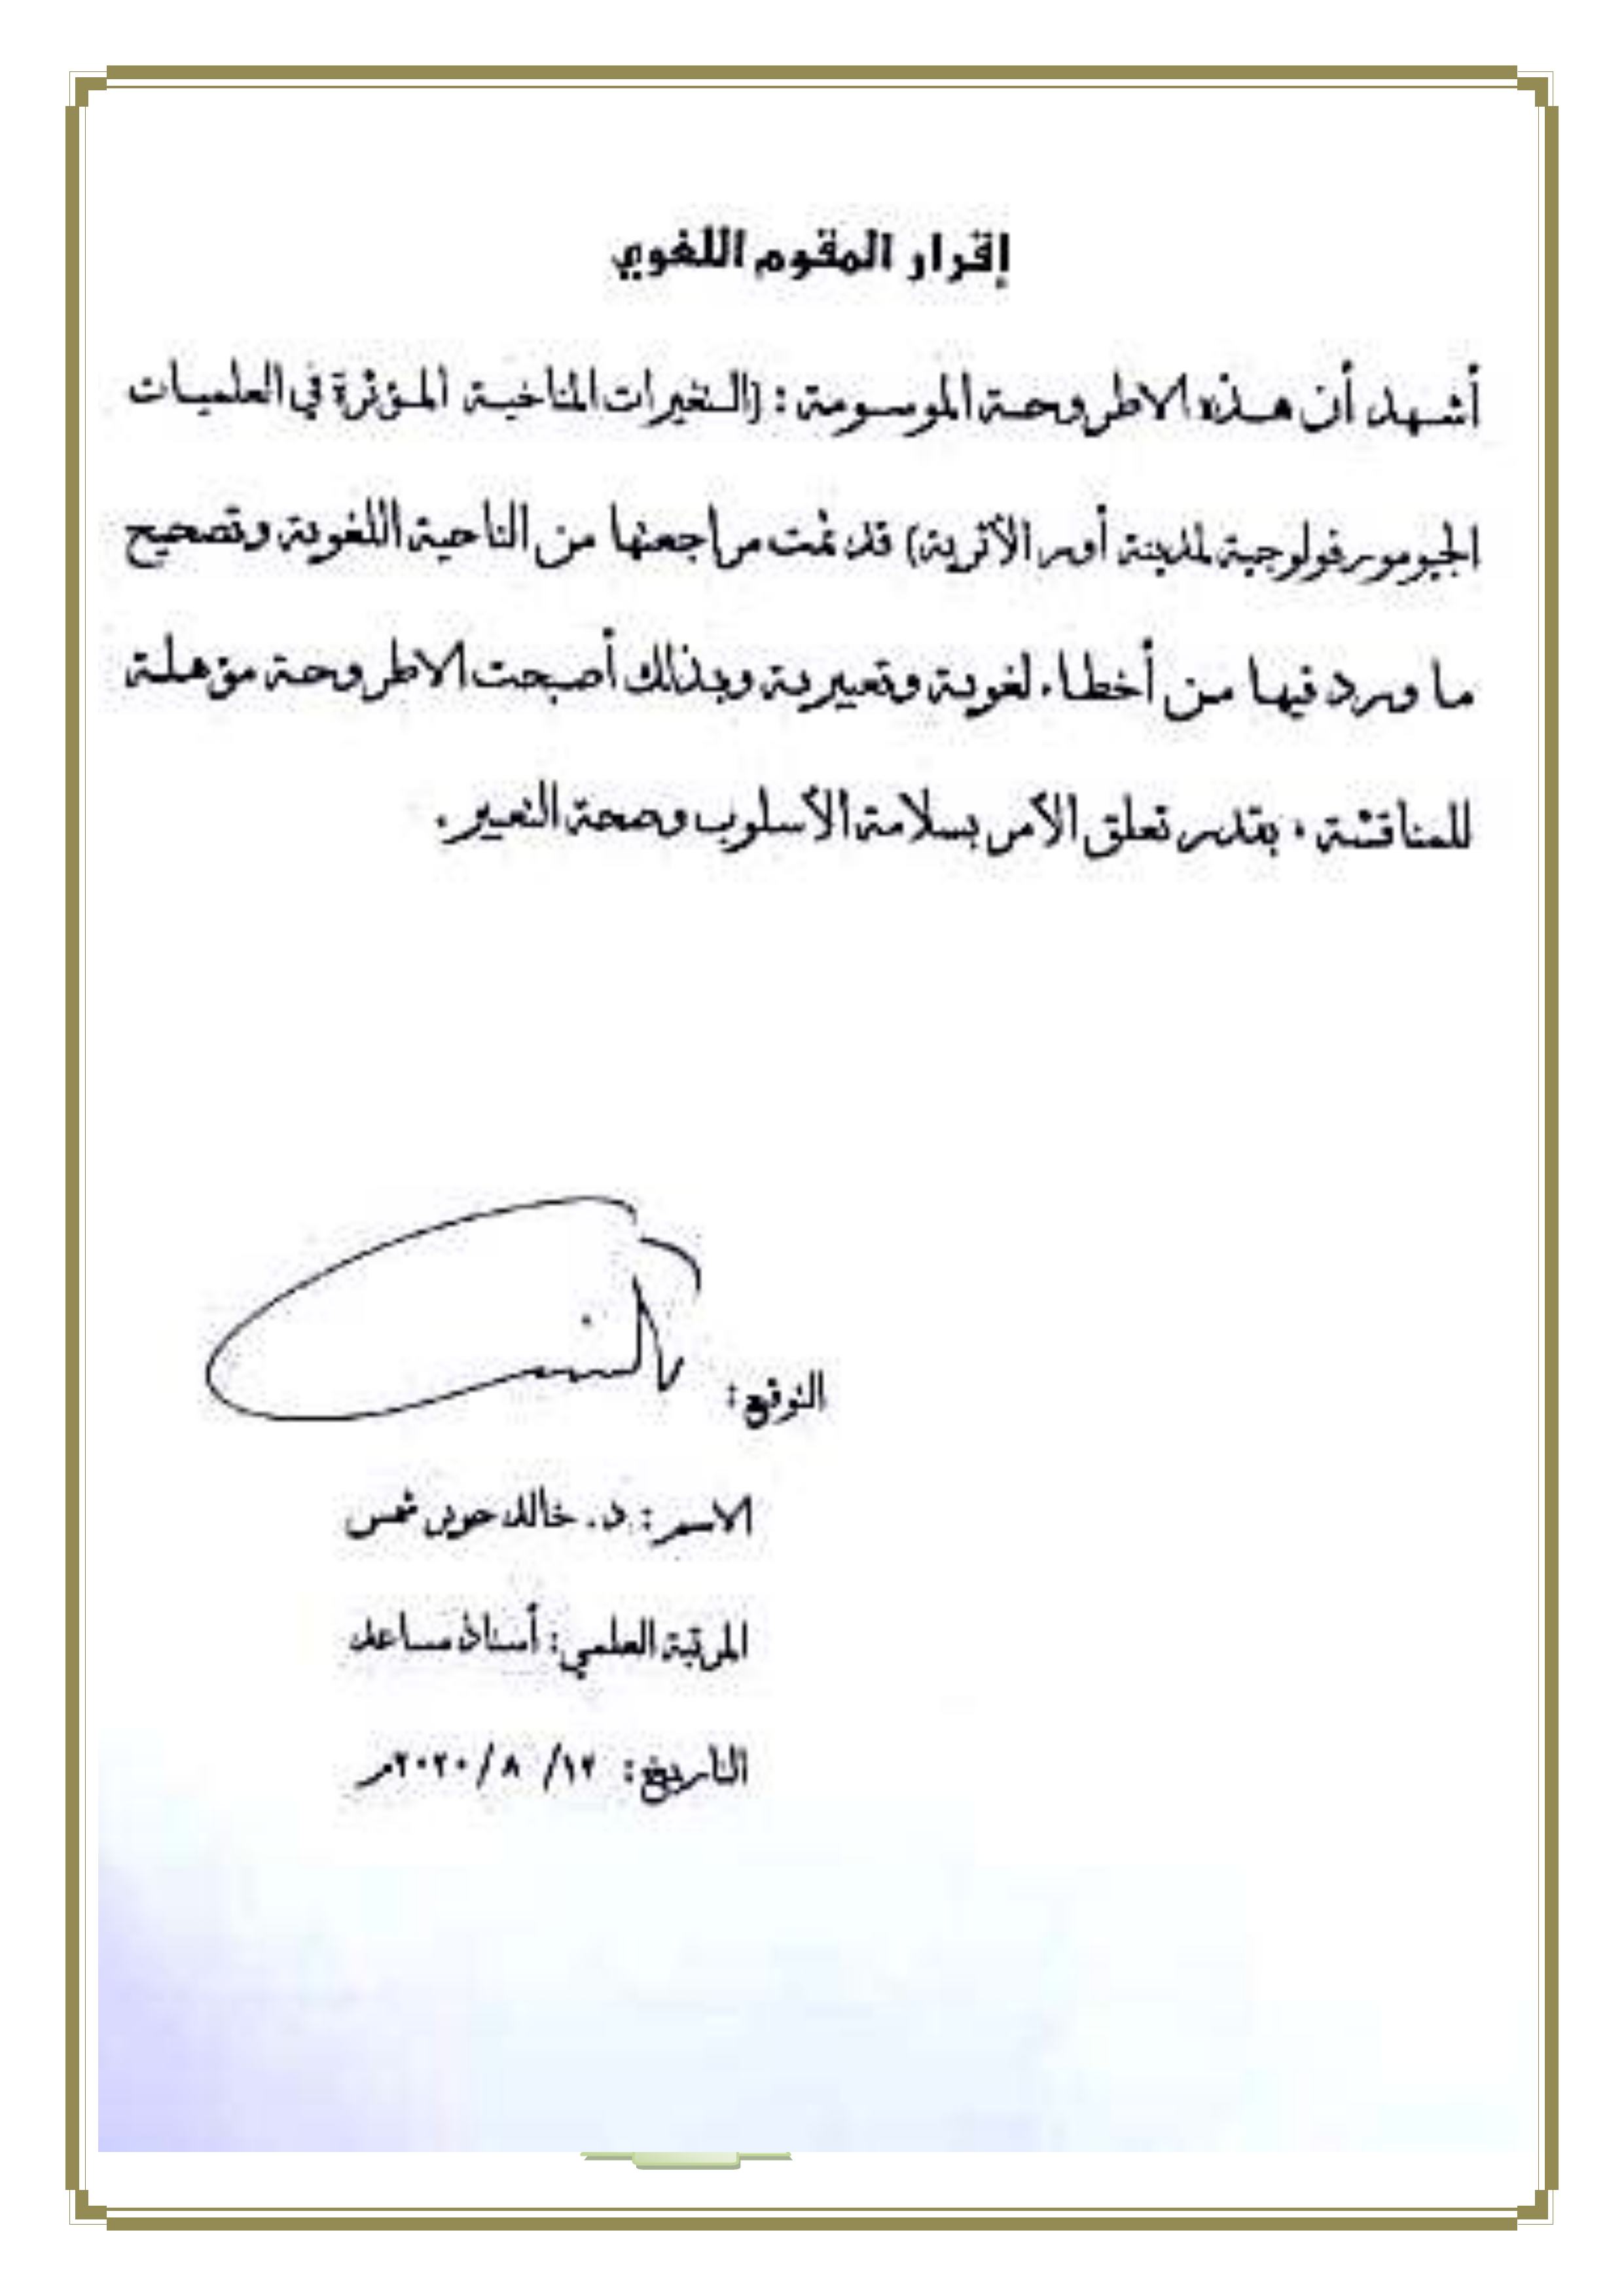 إقرار المقوم اللغوي
أشهد أن هذه الاطروحة الموسومة : (التغيرات المناخية المؤثرة في العلميات
الجيومورفولوجية لمدينة أور الأثرية) قد تمت مراجعتها من الناحية اللغوية وتصحيح
ما ورد فيها من أخطاء لغوية وتعبيرية وبذلك أصبحت الاطروحة مؤهلة
للمناقشة ، بقدر تعلق الأمر بسلامة الأسلوب وصحة التعبير .
التوقيع :
الاسم : د. خالد حوير شمس
المرتبة العلمي : أستاذ مساعد
التاريخ : ١٢/ ٨ /٢٠٢٠م